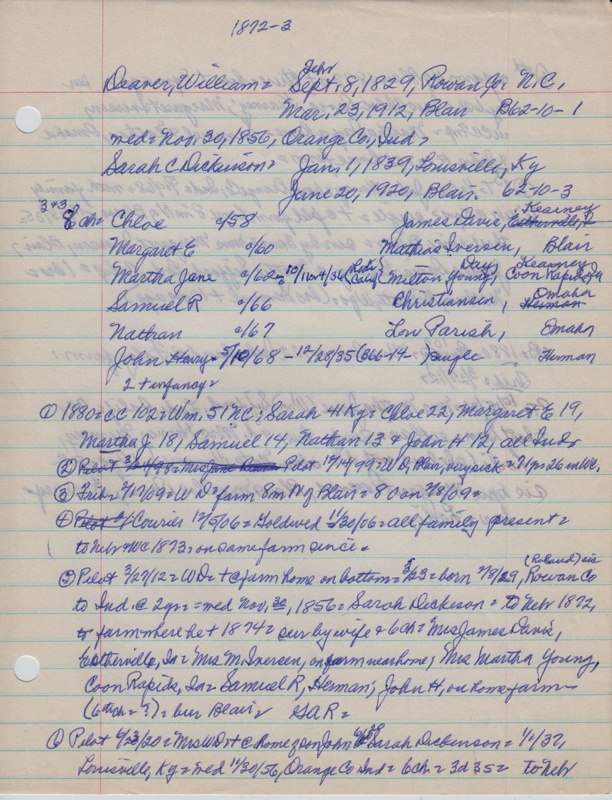 1872-3
Deaver, William = Febr Sept, 8, 1829, Rowan Co. N.C.
Mar. 23, 1912, Blair B62-10-1
med = Nov. 30, 1856, Orange Co, Ind =
Sarah C Dickinson = Jan, 1, 1839, Louisville, Ky
June 20, 1920, Blair. 62-10-3
3+3 8 ch = Chloe c/58 James Davis, Kearney
Margaret E c/60 Mathias Iversen, Blair
Martha Jane c/62 (Lodi Calif) Milton Young, Day, Kearney Coon Rapids, Ia
Samuel R c/66 Christiansen, Omaha Herman
Nathan c/67 Lou Parish, Omaha
John Henry = 5/10/68 - 12/28/35 (B66-14- single Herman
2 + infancy =
① 1880 = cc 102 = Wm, 51 NC; Sarah 41 Ky = Chloe 22, Margaret E 19,
Martha J 18, Samuel 14, Nathan 13 & John H 12, all Ind
② Pilot Pilot 12/14/99 = WD, Blair, very sick = 71 yr = 26 in WC.
③ Trib = 2/17/09 = WD = farm 8m N of Blair = 80 on 2/8/09 =
④ Pilot Courier 12/5/06 = Goldwed 11/30/06 = all family present =
to Nebr & WC 1873 = on same farm since =
⑤ Pilot 3/27/12 = WD = + @ farm home on bottom = 3/23 = born 2/8/29, (Roland) sic Rowan Co
to Ind @ 2 yr = med Nov, 30, 1856 = Sarah Dickeson = to Nebr 1872,
to farm where he + 1874 = sur by wife & 6 ch = Mrs James Davis,
Estherville, Ia = Mrs M. Iversen, on farm near home; Mrs Martha Young,
Coon Rapids, Ia = Samuel R, Herman; John H, on home farm
(6th ch = ?) = bur Blair = GAR =
⑥ Pilot 6/23/20 = Mrs WD + @ home of son John = Sarah Dickenson = 1/1/37,
Louisville, Ky = med 11/30/56, Orange Co Ind = 6 ch = 3d 3s = to Nebr